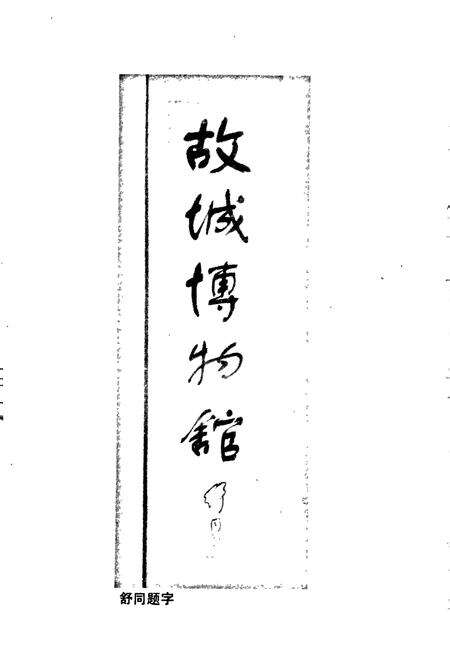 故城博物舘
舒同
舒同题字